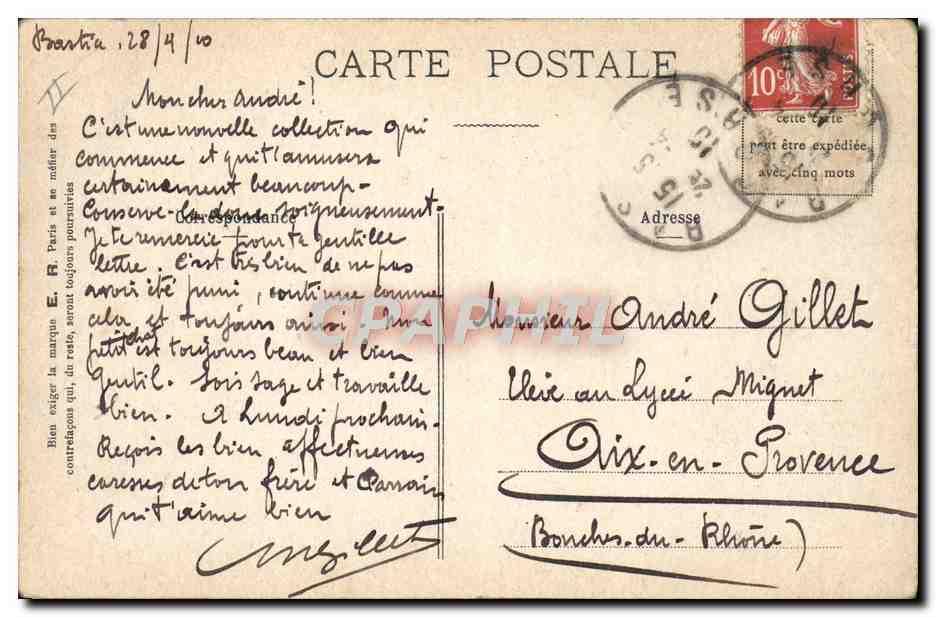 Bastia, 28/4/10
CARTE POSTALE
II
Mon cher André!
C'est une nouvelle collection qui
commence et qui t'amusera
certainement beaucoup.
Conserve-la donc soigneusement.
Je te remercie pour ta gentille
lettre. C'est très bien de ne pas
avoir été puni, continue comme
cela et toujours aussi. Mon
petit chat est toujours beau et bien
gentil. Sois sage et travaille
bien. A Lundi prochain.
Reçois les bien affectueuses
caresses de ton frère et Parrain
qui t'aime bien
Gillet
Correspondance
Bien exiger la marque E. R. Paris et se méfier des
contrefaçons qui, du reste, seront toujours poursuivies
10c
cette carte
peut être expédiée
avec cinq mots
Adresse
Monsieur André Gillet
Elève au Lycée Mignet
Aix-en-Provence
(Bouches-du-Rhône)
CPAPHIL